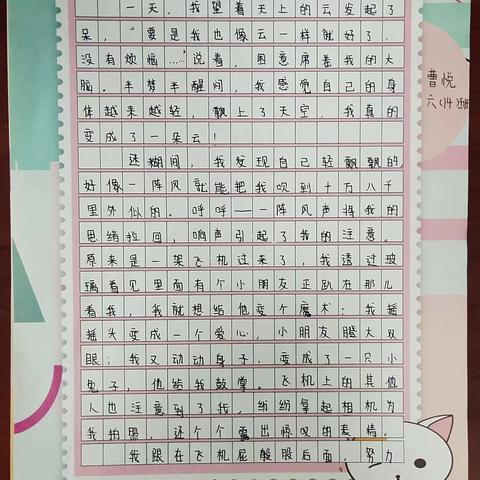 一天，我望着天上的云发起了
呆，“要是我也像云一样就好了，
没有烦恼……”说着，困意席卷我的大
脑。半梦半醒间，我感觉自己的身
体越来越轻，飘上了天空，我真的
变成了一朵云！
迷糊间，我发现自己轻飘飘的，
好像一阵风就能把我吹到十万八千
里外似的。呼呼——一阵风声将我的
思绪拉回，响声引起了我的注意。
原来是一架飞机过来了，我透过玻
璃看见里面有个小朋友正趴在那儿
看我，我就想给他变个魔术：我摇
摇头变成一个爱心，小朋友瞪大双
眼；我又动动身子，变成了一只小
兔子，他给我鼓掌。飞机上的其他
人也注意到了我，纷纷拿起相机为
我拍照，还个个露出惊叹的表情，
我跟在飞机屁股后面，努力
曹悦
六(14)班